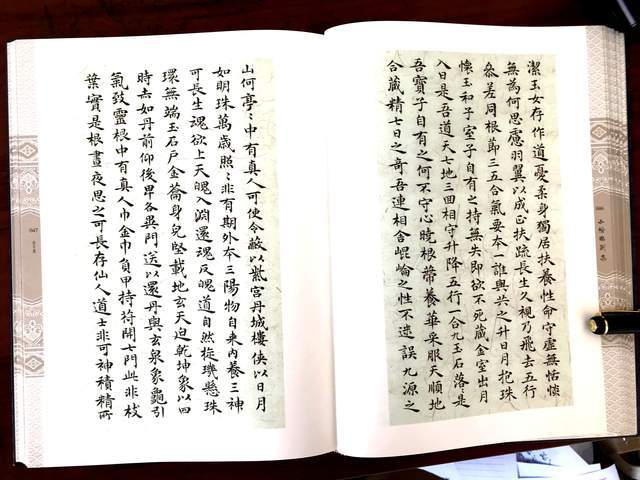 潔玉女存作道憂柔身獨居扶養性命守虛無恬惔
無為何思慮羽翼以成正扶疏長生久視乃飛去五行
叅差同根莭三五合氣要本一誰與共之升日月抱珠
懷玉和子室子自有之持無失即欲不死藏金室出月
入日是吾道天七地三回相守升降五行一合九玉石落〻是
吾寶子自有之何不守心曉根蒂養華采服天順地
合藏精七日之奇吾連相舍崐崘之性不迷誤九源之
山何亭〻中有真人可使令蔽以紫宮丹城樓俠以日月
如明珠萬歲照〻非有期外本三陽物自来內養三神
可長生魂欲上天魄入淵還魂反魄道自然旋璣懸珠
環無端玉石戶金籥身兒堅載地玄天迫乾坤象以四
時赤如丹前仰後卑各異門送以還丹與玄泉象龜引
氣致靈根中有真人巾金巾負甲持符開七門此非枝
葉實是根晝夜思之可長存仙人道士非可神積精所
047